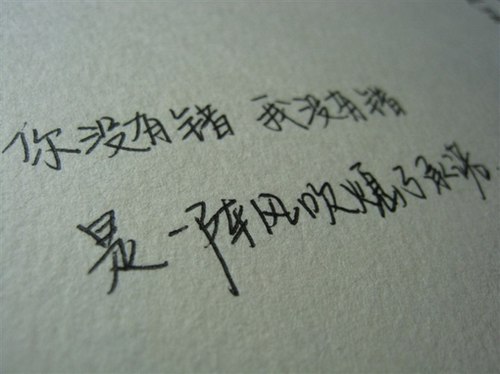 你没有错 我没有错
是一阵风吹熄了承诺.